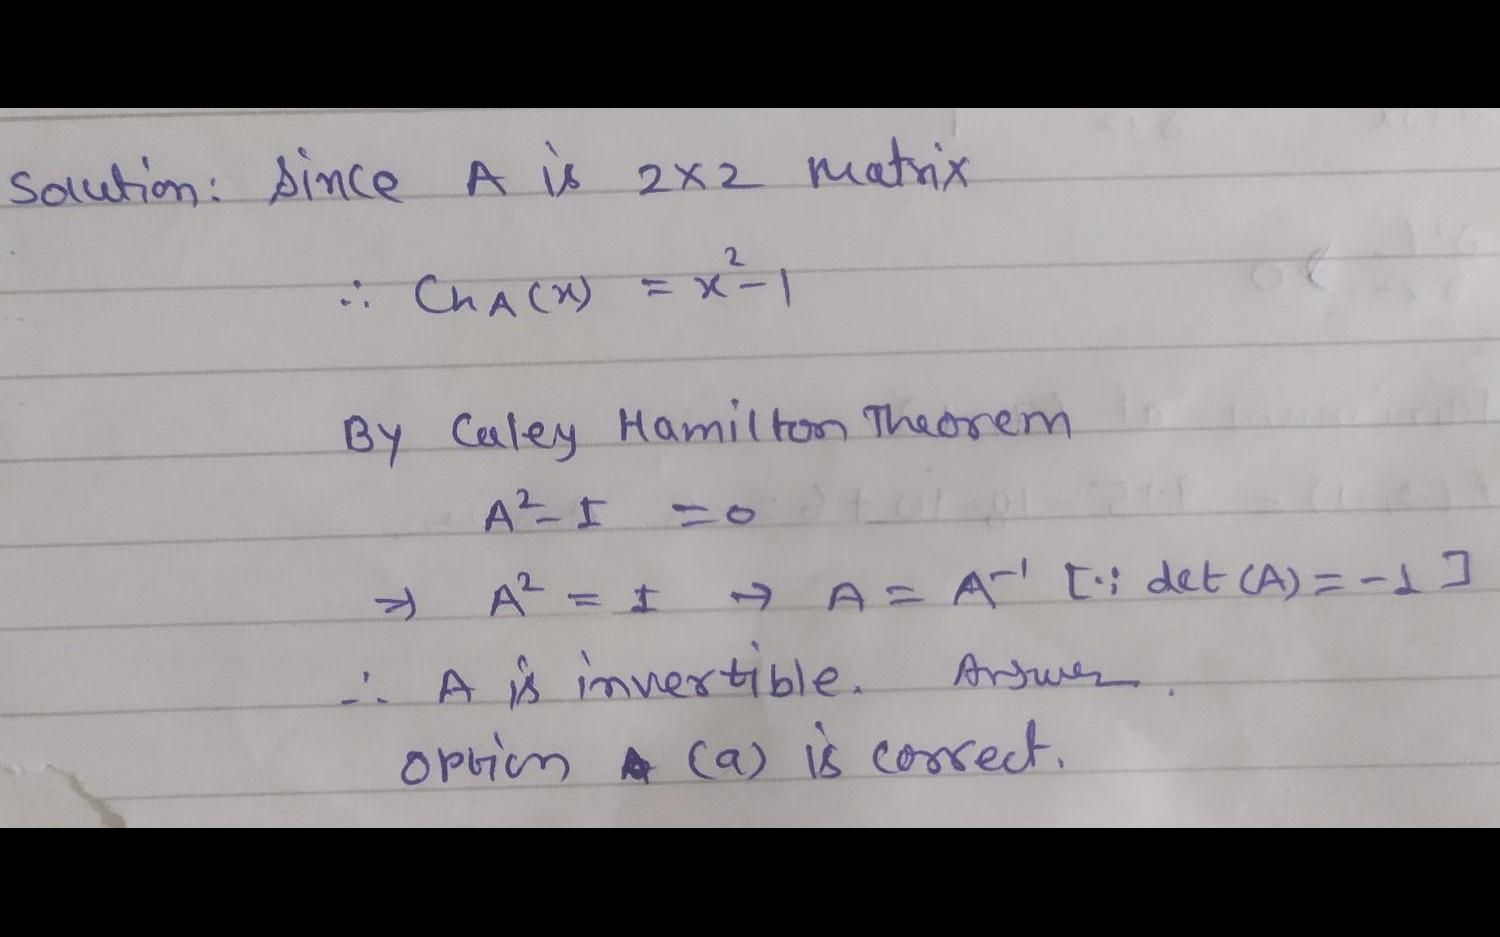 Solution: Since A is 2×2 matrix
∴ Ch A (x) = x²-1
By Caley Hamilton Theorem
A²- I = 0
⇒ A² = I → A = A⁻¹ [∵ det (A) = -1]
∴ A is invertible. Answer.
option A (a) is correct.